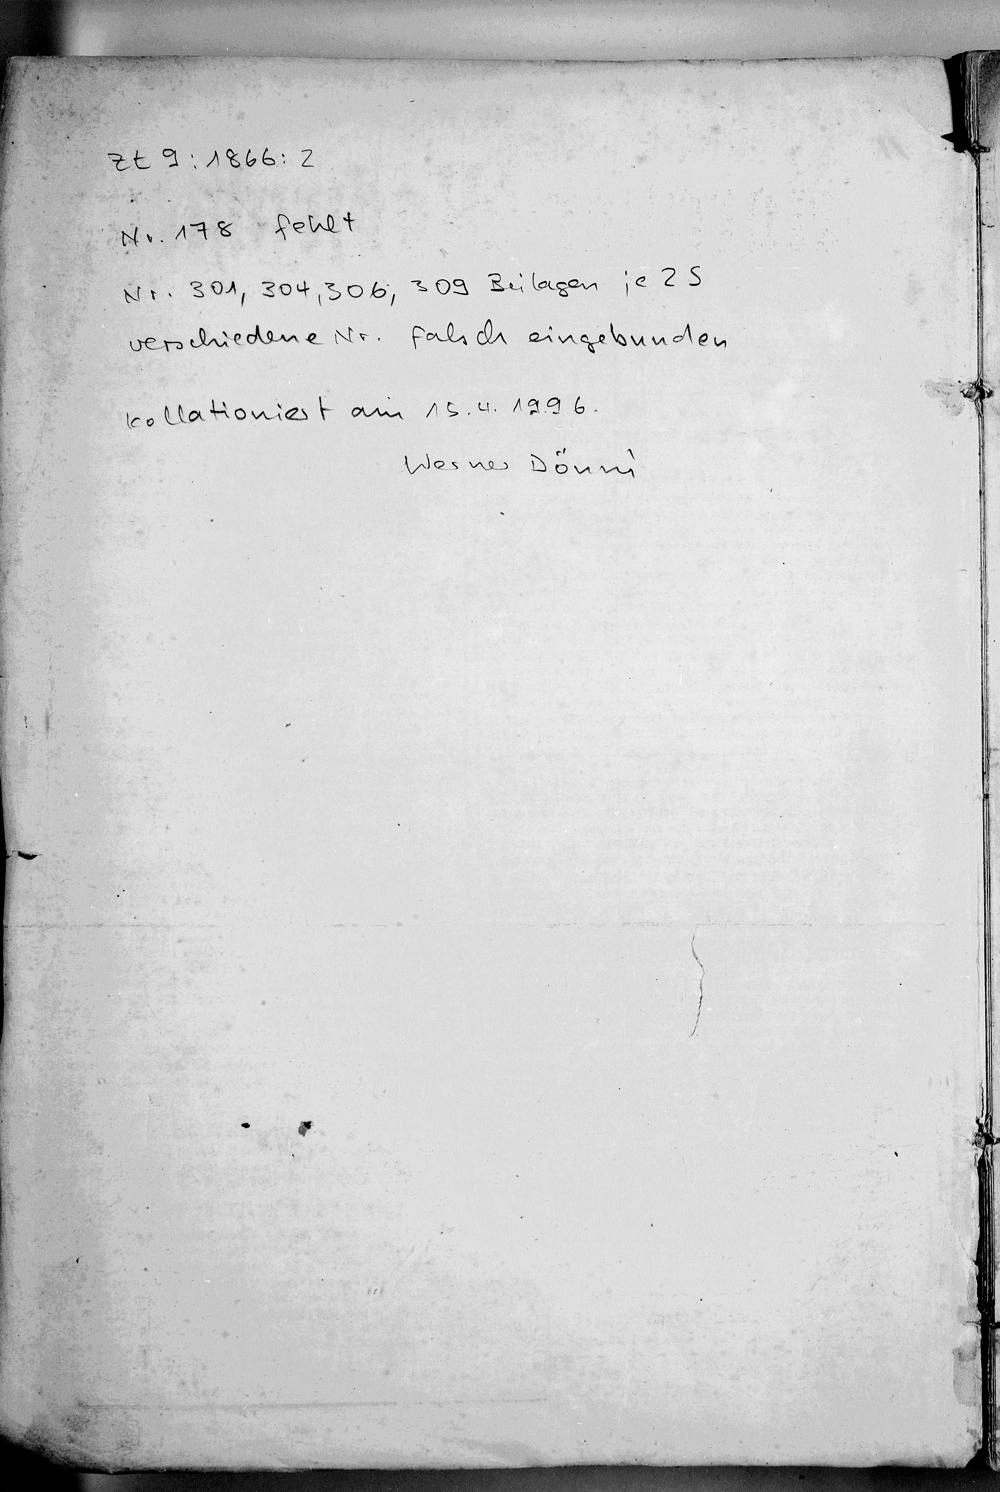 Zt 9:1866:2
Nr. 178 fehlt
Nr. 301, 304, 306, 309 Beilagen je 2 S
verschiedene Nr. falsch eingebunden
kollationiert am 15.4.1996.
Werner Dönni